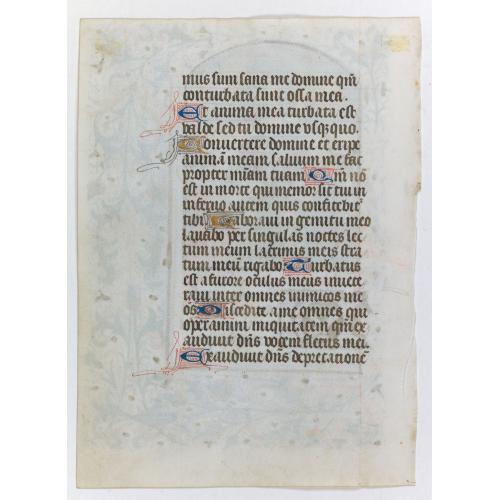 mus sum sana me domine qm̄
conturbata sunt ossa mea.
Et anima mea turbata est
valde sed tu domine vsq; quo.
Convertere domine et eripe
animā meam saluum me fac
propter mīam tuam Qm̄ nō
est in morte qui memor sit tui in
inferno autem quis confitebit̄
tibi Laboraui in gemitu meo
lauabo per singulas noctes lec
tum meum lacrimis meis stra
tum meū rigabo Turbatus
est a furore oculus meus inuete
raui inter omnes inimicos me
os Discedite a me omnes qui
operamini iniquitatem qm̄ ex
audiuit dn̄s vocem fletus mei.
Exaudiuit dn̄s deprecationē